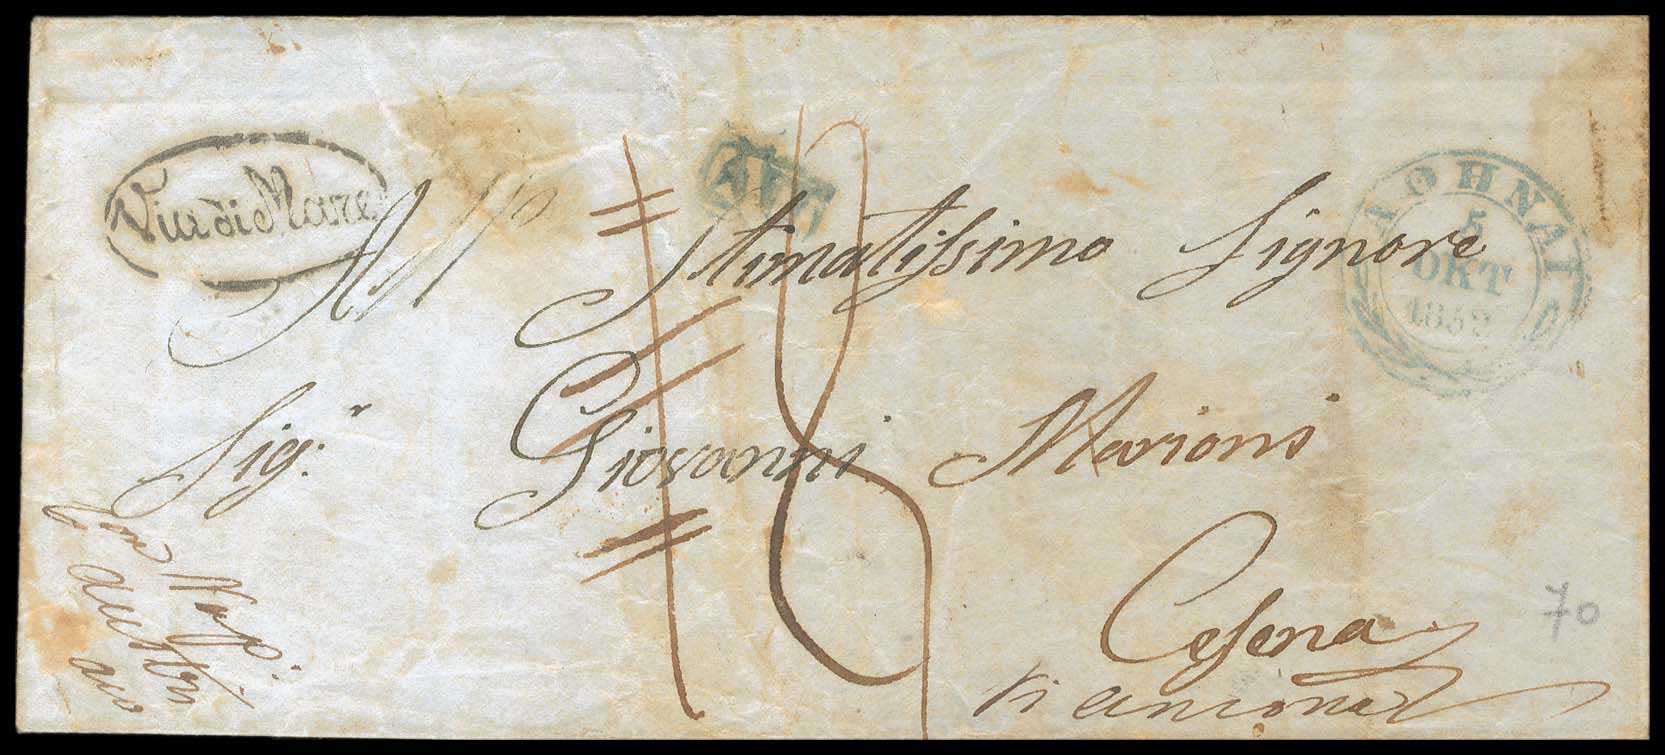 Via di Mare
ΑΘΗΝΑΙ
5
ΟΚΤ
All Stimatissimo Signore
Sig.r Giovanni Marioni
Con Vap.
austr
18
Cesena
Vi ancona
70